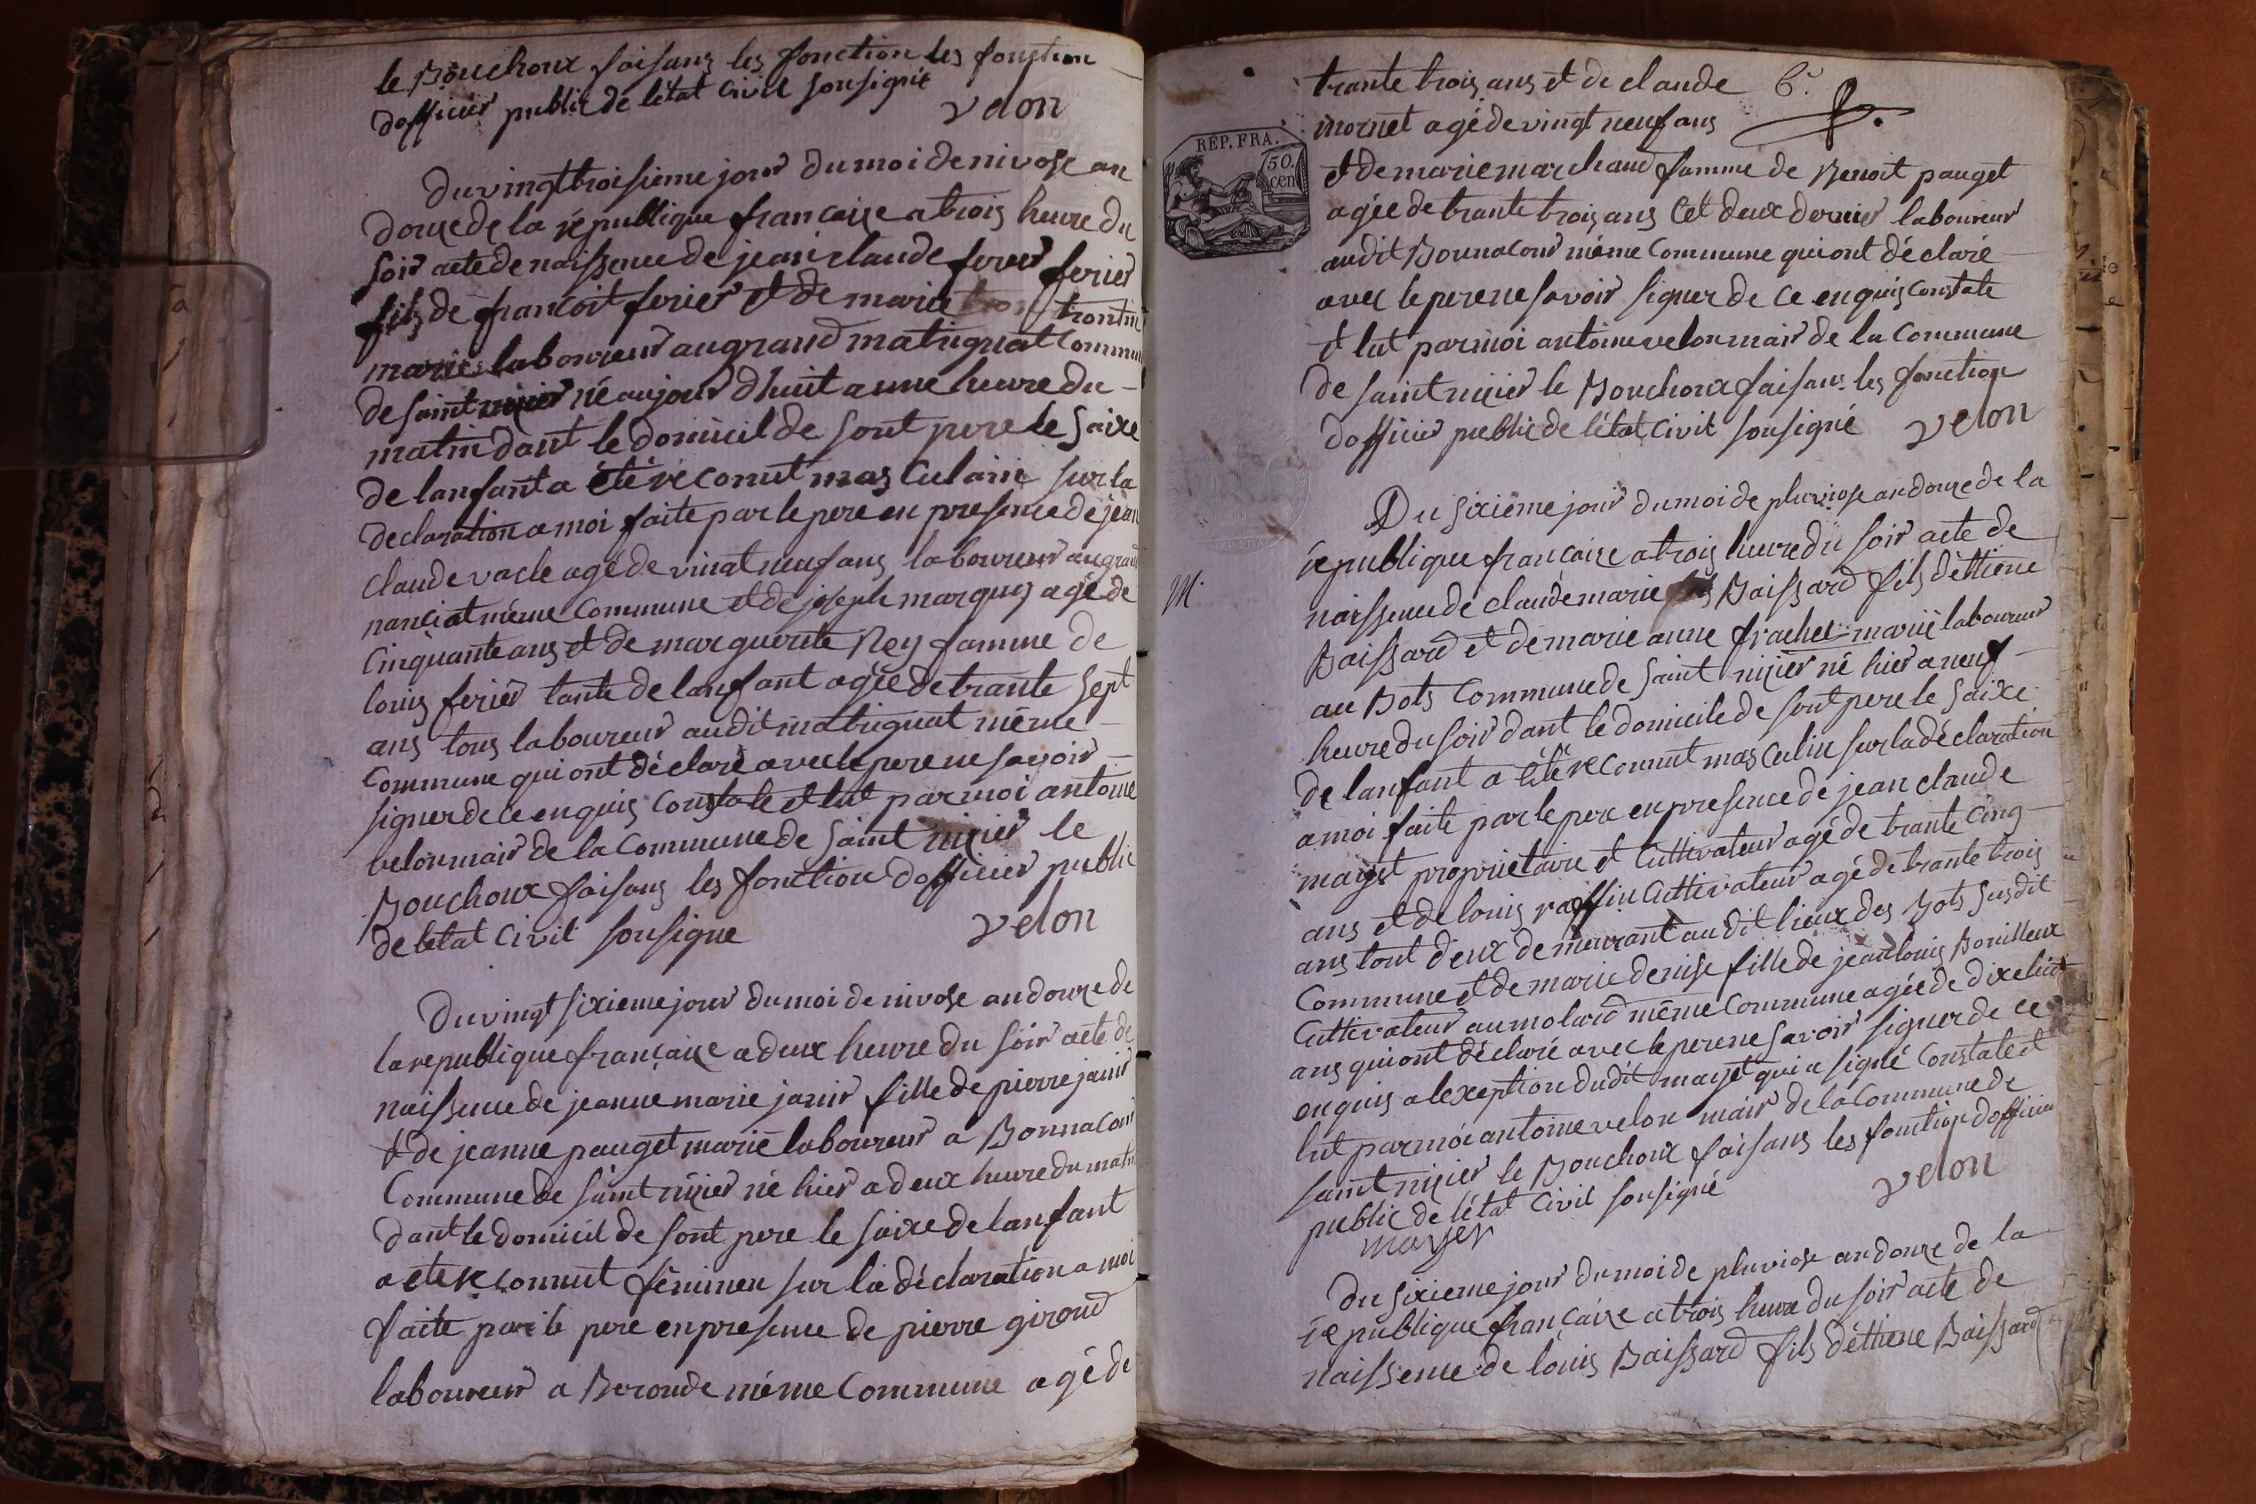 le Bouchoux faisans les fonction les fonction
dofficier public de létat Civil sousigné
velon
Du vingt troisieme jour du moi de nivose an
douze de la république francaise a trois heure du
soir acte de naissence de jean claude ferier ferier
fils de francois ferier et de marie trontin
mariés laboureur au grand matrignat Commune
de saint nizier né aujour dhuit a une heure du
matin dant le domicil de sont pere le saixe
de lanfant a été réconut masculain sur la
declaration a moi faite par le pere en presence de jean
claude vacle agé de vingt neuf ans laboureur au grand
nanciat même Commune et de joseph marquis agé de
Cinquante ans et de marguerite Rey famme de
louis ferier tante de lanfant agée de trante sept
ans tous laboureur audit matrignat même
Commune qui ont déclaré avec le pere ne savoir
signer de ce enquis Constaté et lut par moi antoine
velon mair de la Commune de saint nizier le
Bouchoux faisans les fonction dofficier public
de letat Civil sousigné
velon
Du vingt sixieme jour du moi de nivose an douze de
la republique française a deux heure du soir acte de
naissence de jeanne marie janin fille de pierre janin
et de jeanne pauget marié laboureur a Bonnacour
Commune de saint nizier né hier a deux heure du matin
dant le domicil de sont pere le saixe de lanfant
a été reconnut féminen sur la déclaration a moi
faite par le pere en presence de pierre giroud
laboureur a Beronde même Commune agé de
trante trois ans et de claude 6.e
mornet agé de vingt neuf ans
RÉP. FRA.
50.
cen
et de marie marchand famme de Benoit pauget
agée de trante trois ans Cet deux dernier laboureur
audit Bounacour même Commune qui ont déclaré
avec le pere ne savoir signer de ce enquis constaté
et lut par moi antoine velon mair de la Commune
de saint nizier le Bouchoux faisans les fonction
dofficier public de létat Civil sousigné velon
Du sixieme jour du moi de pluviose an douze de la
république francaise a trois heure du soir acte de
M.
naissence de claude marie Baissard fils déttiene
Baissard et de marie anne frachet marié laboureur
au Bots Commune de saint nizier né hier a neuf
heure du soir dant le domicile de sont pere le saixe
de lanfant a été reconnut masculin sur la déclaration
a moi faite par le pere en presence de jean claude
mayet proprietaire et Cultivateur agé de trante cinq
ans et de louis raffin Cultivateur agé de trante trois
ans tout deux demeurant audit lieux des Bots susdit
Commune et de marie denise fille de jean louis Bouilleux
Cultivateur au molard même Commune agée de dixe huit
ans qui ont déclaré avec le pere ne savoir signer de ce
enquis a lexeption dudit mayet qui a signé Constaté et
lut par moi antoine velon mair de la Commune de
saint nizier le Bouchoux faisans les fonction dofficier
public de létat Civil sousigné velon
mayer
Du sixieme jour du moi de pluviose an douze de la
république française a trois heure du soir acte de
naissence de louis Baissard fils déttiene Baissard